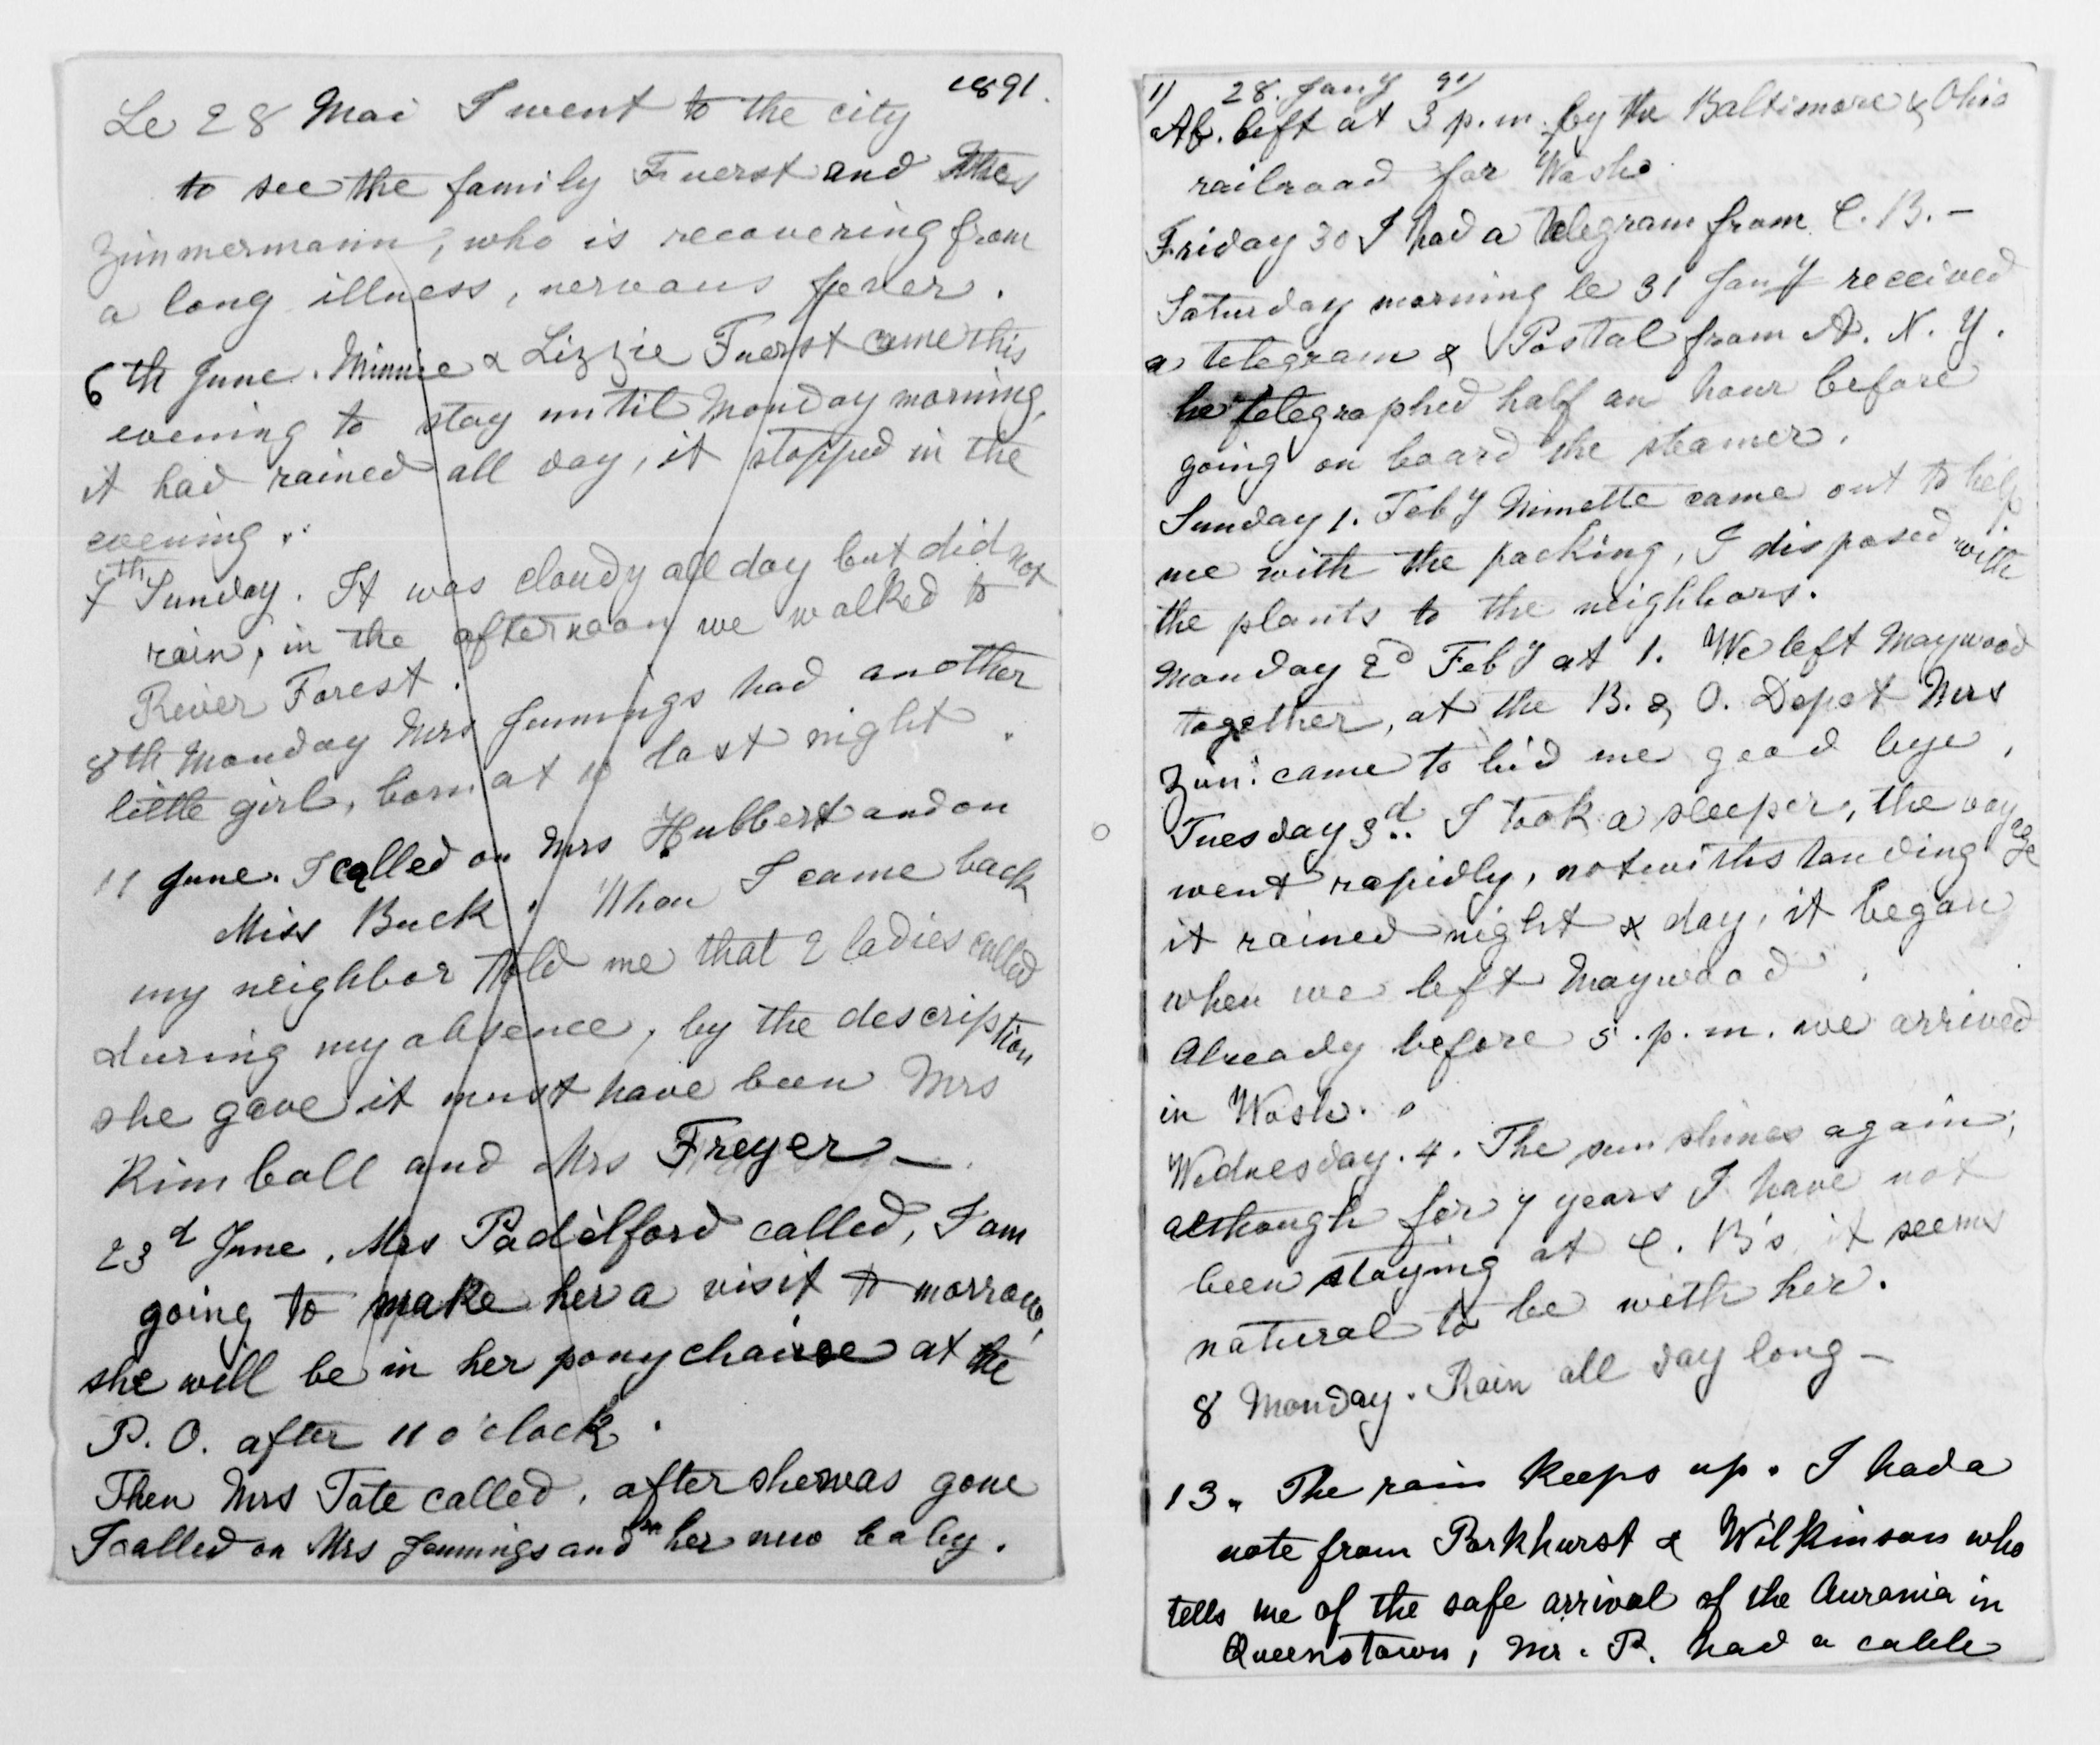 1891.
Le 28 Mai I went to the city
to see the family Fuerst and Mrs
Zimmermann, who is recovering from
a long illness, nervous fever.
6th June. Minnie & Lizzie Fuerst came this
evening to stay until Monday morning,
it had rained all day, it stopped in the
evening.
7th Sunday. It was cloudy all day but did not
rain, in the afternoon we walked to
River Forest.
8th Monday Mrs Jennings had another
little girl, born at 10 last night.
11 June. I called on Mrs Hubbert and on
Miss Buck. When I came back
my neighbor told me that 2 ladies called
during my absence, by the description
she gave it must have been Mrs
Kimball and Mrs Freyer —.
23d June. Mrs Padelford called, I am
going to make her a visit to morrow,
she will be in her pony chaise at the
P. O. after 11 o'clock.
Then Mrs Tate called. after she was gone
I called on Mrs Jennings and on her new baby.
1) 28. Jany 91)
Ab. left at 3 p.m. by the Baltimore & Ohio
railroad for Wash.
Friday 30 I had a telegram from C. B. —
Saturday morning le 31 Jany received
a telegram & Postal from A. N. Y.
he telegraphed half an hour before
going on board the steamer.
Sunday 1. Feby Ninette came out to help
me with the packing, I disposed with
the plants to the neighbors.
Monday 2d Feby at 1. We left Maywood
together, at the B. & O. Depot Mrs
Zim. came to bid me good bye,
Tuesday 3d. I took a sleeper, the voyage
went rapidly, notwithstanding
it rained night & day, it began
when we left Maywood.
Already before 5. p.m. we arrived
in Wash.
Wednesday. 4. The sun shines again,
although for 7 years I have not
been staying at C. B's it seems
natural to be with her.
8 Monday. Rain all day long —
13. The rain keeps up. I had a
note from Parkhurst & Wilkinson who
tells me of the safe arrival of the Aurania in
Queenstown, Mr. P. had a cable